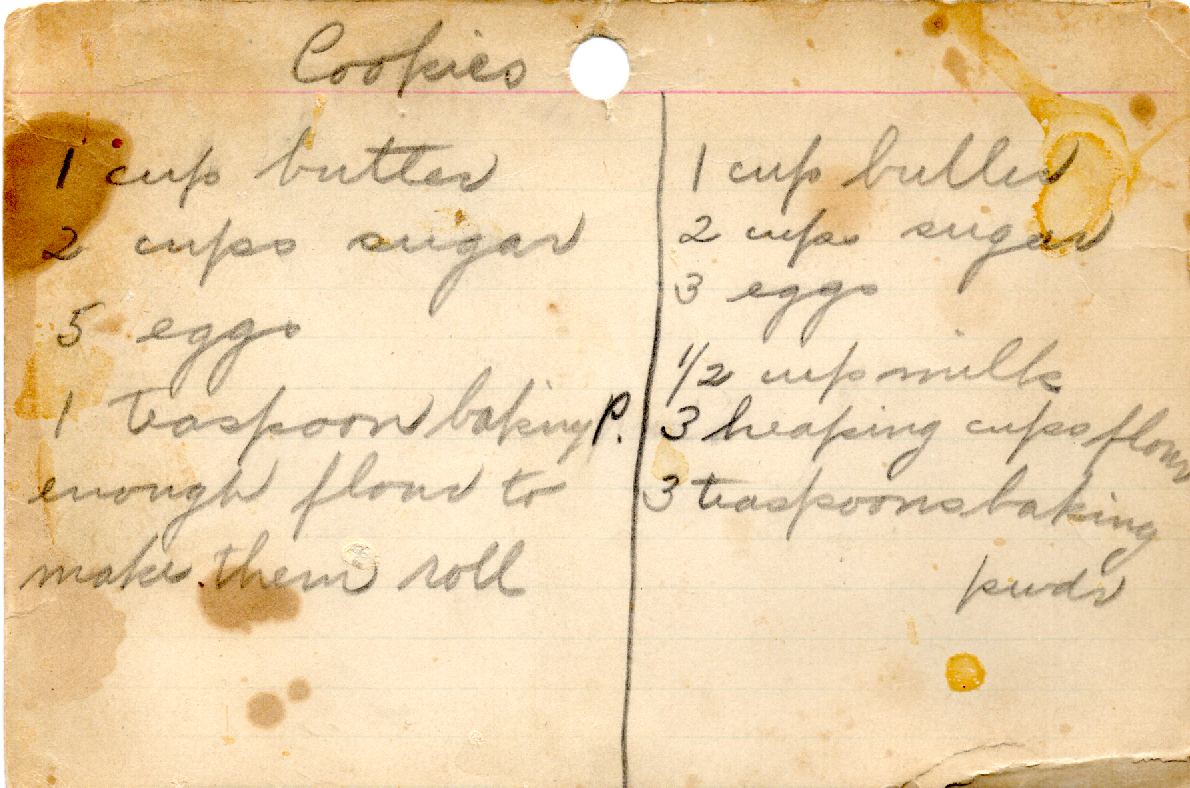 Cookies
1 cup butter
2 cups sugar
5 eggs
1 teaspoon baking P.
enough flour to
make them roll
1 cup butter
2 cups sugar
3 eggs
1/2 cup milk
3 heaping cups flour
3 teaspoons baking
pwdr